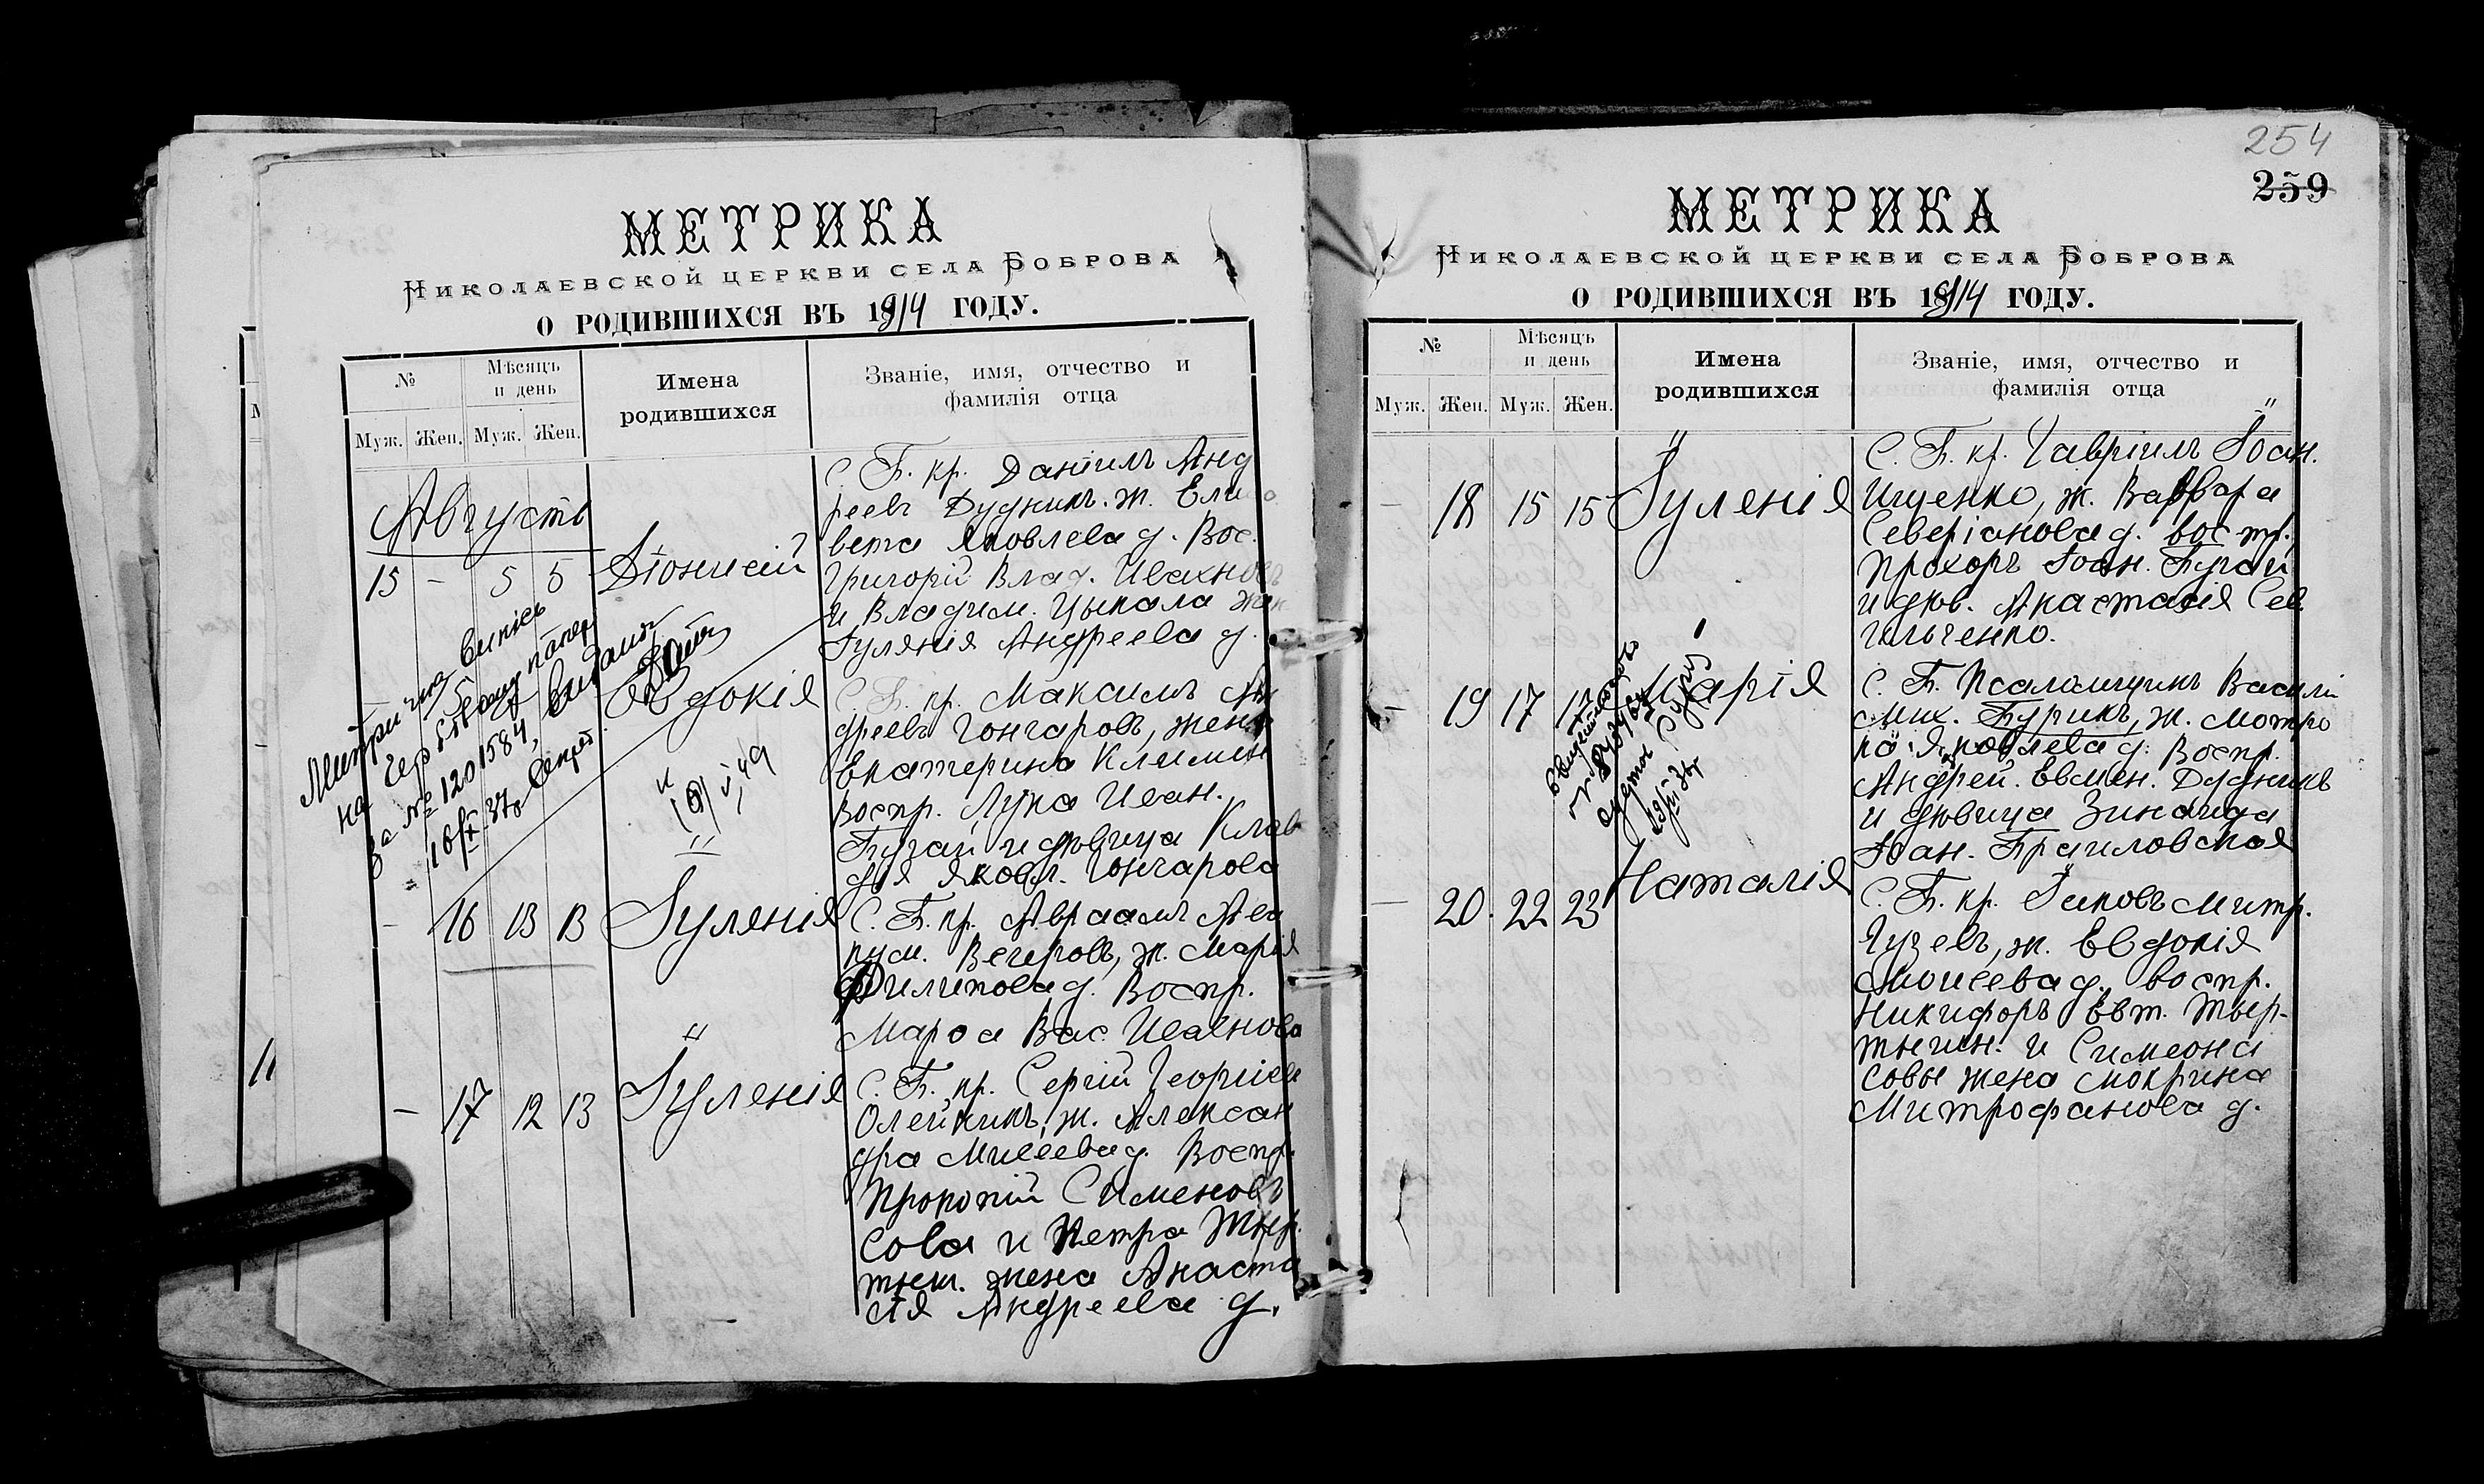 МЕТРИКА
НИКОЛАЕВСКОЙ ЦЕРКВИ СЕЛА БОБРОВА
О РОДИВШИХСЯ ВЪ 1914 ГОДУ.
№
Мѣсяцъ и день
Имена родившихся
Званіе, имя, отчество и фамилія отца
Муж. Жен. Муж. Жен.
Августъ
15 - 5 5 Діонисій
С. Б. кр. Даніилъ Анд
реевъ Дудникъ. ж. Елиса
вета Яковлева д. Вос.
Григорій Влад. Ивахновъ
и Владим. Цыкала жен
Іуліянія Андреева д.
Метрична випись
на
за № 1201584, видана
16/IX 37 р.
Евдокія
С. Б. кр. Максимъ Ан
дреевъ Гончаровъ, жена
Екатерина Климен
Воспр. Лука Иван.
Бугай и дѣвица Клав
дія Яковл. Гончарова
- 16 13 13 Іуліянія
С. Б. кр. Авраамъ Ава
кум. Вечеровъ, ж. Марія
Филипова д. Воспр.
Марѳа Вас. Ивахнова
- 17 12 13 Іуленія
С. Б. кр. Сергій Георгіев
Олейникъ, ж. Алексан
дра Мисеева д. Воспр.
Прокопій Сименовъ
Сова и Петра Тыр.
тышн. жена Анаста
сія Андреева д.
254
259
МЕТРИКА
НИКОЛАЕВСКОЙ ЦЕРКВИ СЕЛА БОБРОВА
О РОДИВШИХСЯ ВЪ 1914 ГОДУ.
№
Мѣсяцъ и день
Имена родившихся
Званіе, имя, отчество и фамилія отца
Муж. Жен. Муж. Жен.
- 18 15 15 Іуленія
С. Б. кр. Гавріилъ Іоан.
Ищенко, ж. Варвара
Северіанова д. воспр.
Прохоръ Іоан. Бугай
и дѣв. Анастасія Сев
Ильченко.
- 19 17 17 Марія
С. Б. Псаломщикъ Василій
Мих. Бурикъ, ж. Мотро
на Яковлева д. Воспр.
Андрей. Евмен. Дудникъ
и дѣвица Зинаида
Іоан. Браиловская
- 20. 22 23 Наталія
С. Б. кр. Іаковъ Митр.
Гузевъ, ж. Евдокія
Моисеева д. воспр.
Никифоръ Евт. Тыр-
тышн. и Симеона
Совы жена Мокрина
Митрофанова д.